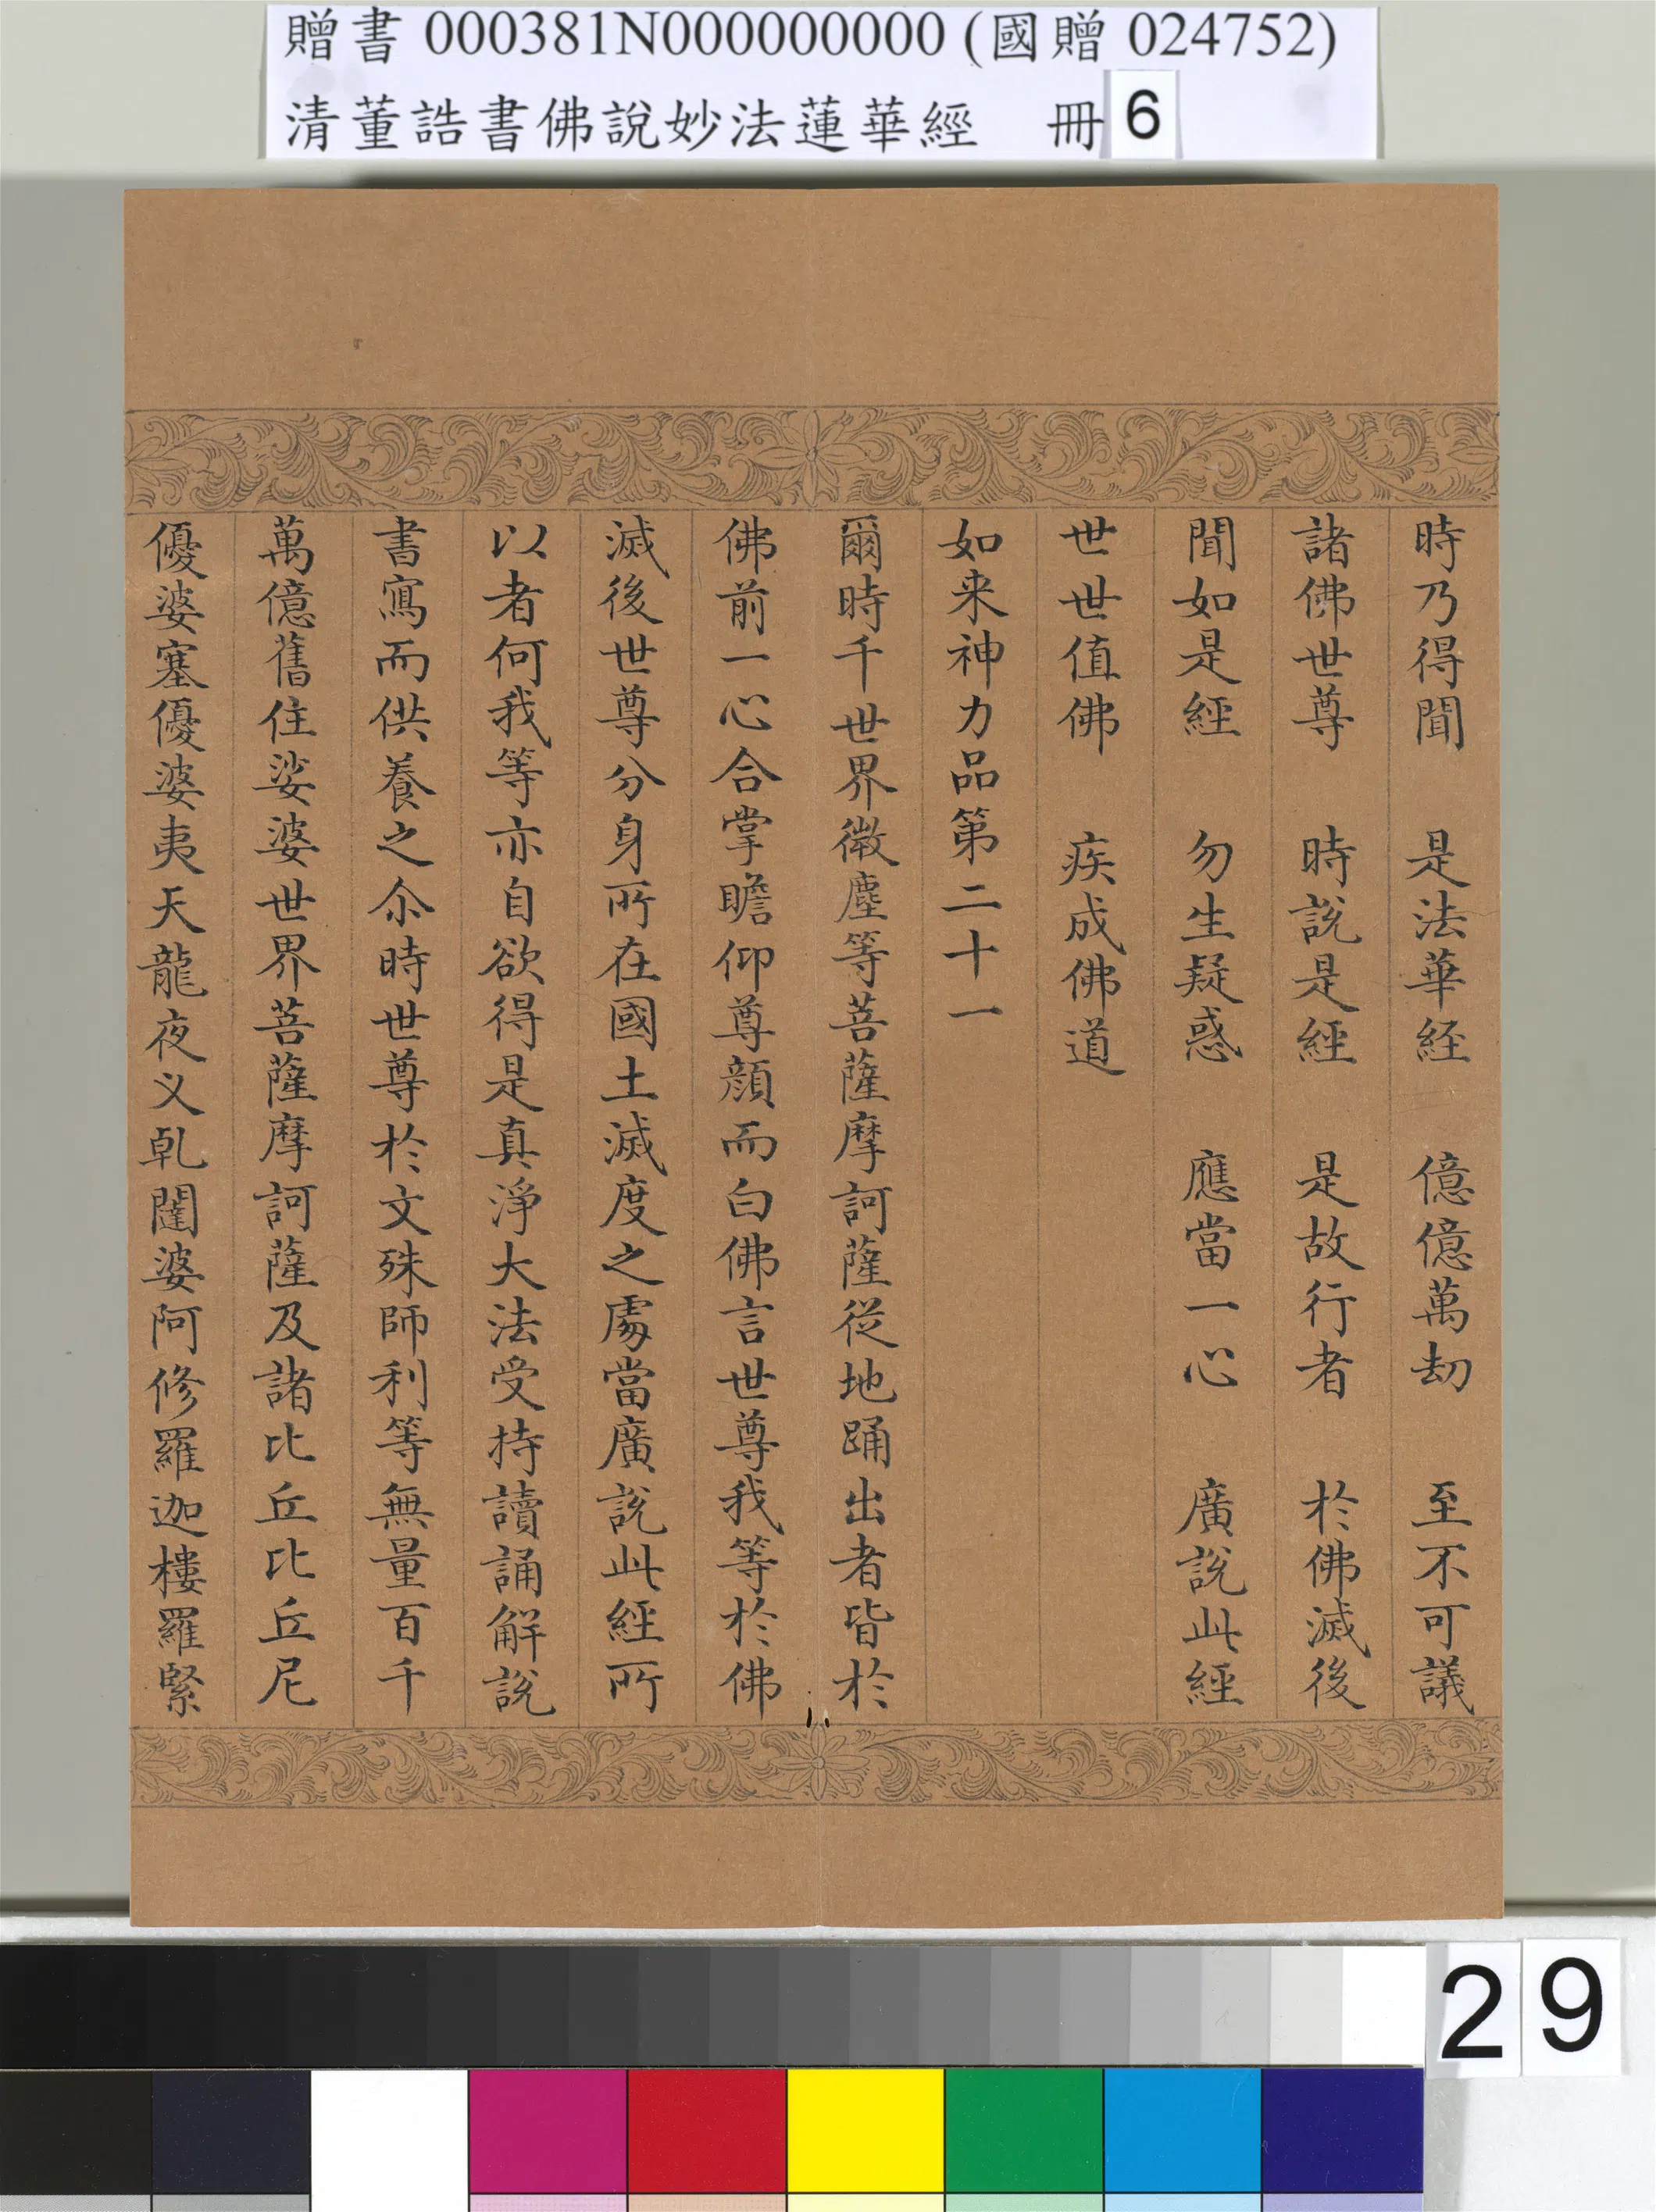 贈書 000381N000000000 (國贈 024752)
清董誥書佛說妙法蓮華經 冊 6
時乃得聞 是法華経 億億萬劫 至不可議
諸佛世尊 時說是經 是故行者 於佛滅後
聞如是經 勿生疑惑 應當一心 廣說此經
世世值佛 疾成佛道
如来神力品第二十一
爾時千世界微塵等菩薩摩訶薩從地踊出者皆於
佛前一心合掌瞻仰尊顏而白佛言世尊我等於佛
滅後世尊分身所在國土滅度之處當廣說此經所
以者何我等亦自欲得是真淨大法受持讀誦解說
書寫而供養之尒時世尊於文殊師利等無量百千
萬億舊住娑婆世界菩薩摩訶薩及諸比丘比丘尼
優婆塞優婆夷天龍夜义乹闥婆阿修羅迦樓羅緊
29